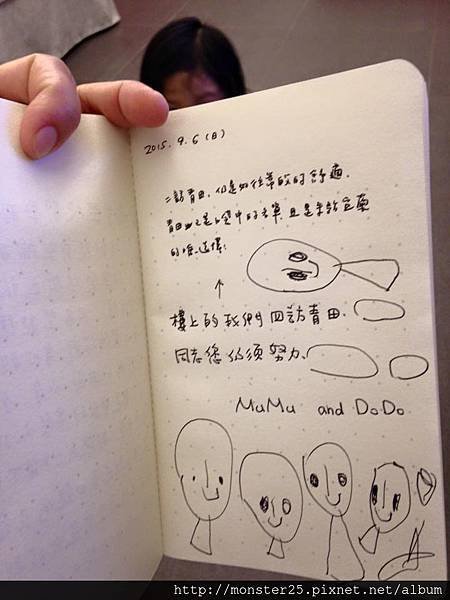 2015.9.6(日)
二訪青田,仍是如往常般的舒適.
青田 是 空中的 且是 宜蘭
的唯一選擇:
↑
樓上的我們四訪青田.
同志您仍須努力.
MuMu and DoDo
http://monster25.pixnet.net/album